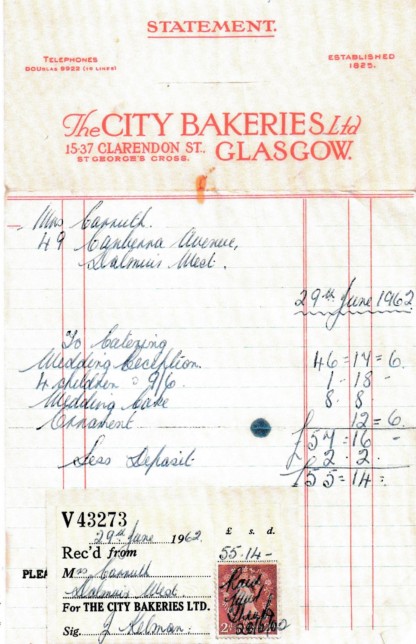 STATEMENT.
TELEPHONES
DOUGLAS 9922 (10 LINES)
ESTABLISHED
1825.
The CITY BAKERIES Ltd
15-37 CLARENDON ST.,
ST GEORGE'S CROSS.
GLASGOW.
Mrs Carruth.
49 Canberra Avenue,
Dalmuir West.
29th June 1962
To Catering
Wedding Reception. 46 = 17 = 6.
4 children @ 9/6. 1 - 18 -
Wedding Cake 8. 8.
Ornament. 12 = 6.
£57 = 16 -
Less Deposit £2. 2.
£55 = 14 =
V43273
29th June 1962 £ s. d.
Rec'd from 55.14 -
Mrs Carruth
Dalmuir West.
For THE CITY BAKERIES LTD.
Sig. J Kelman.
PLEA